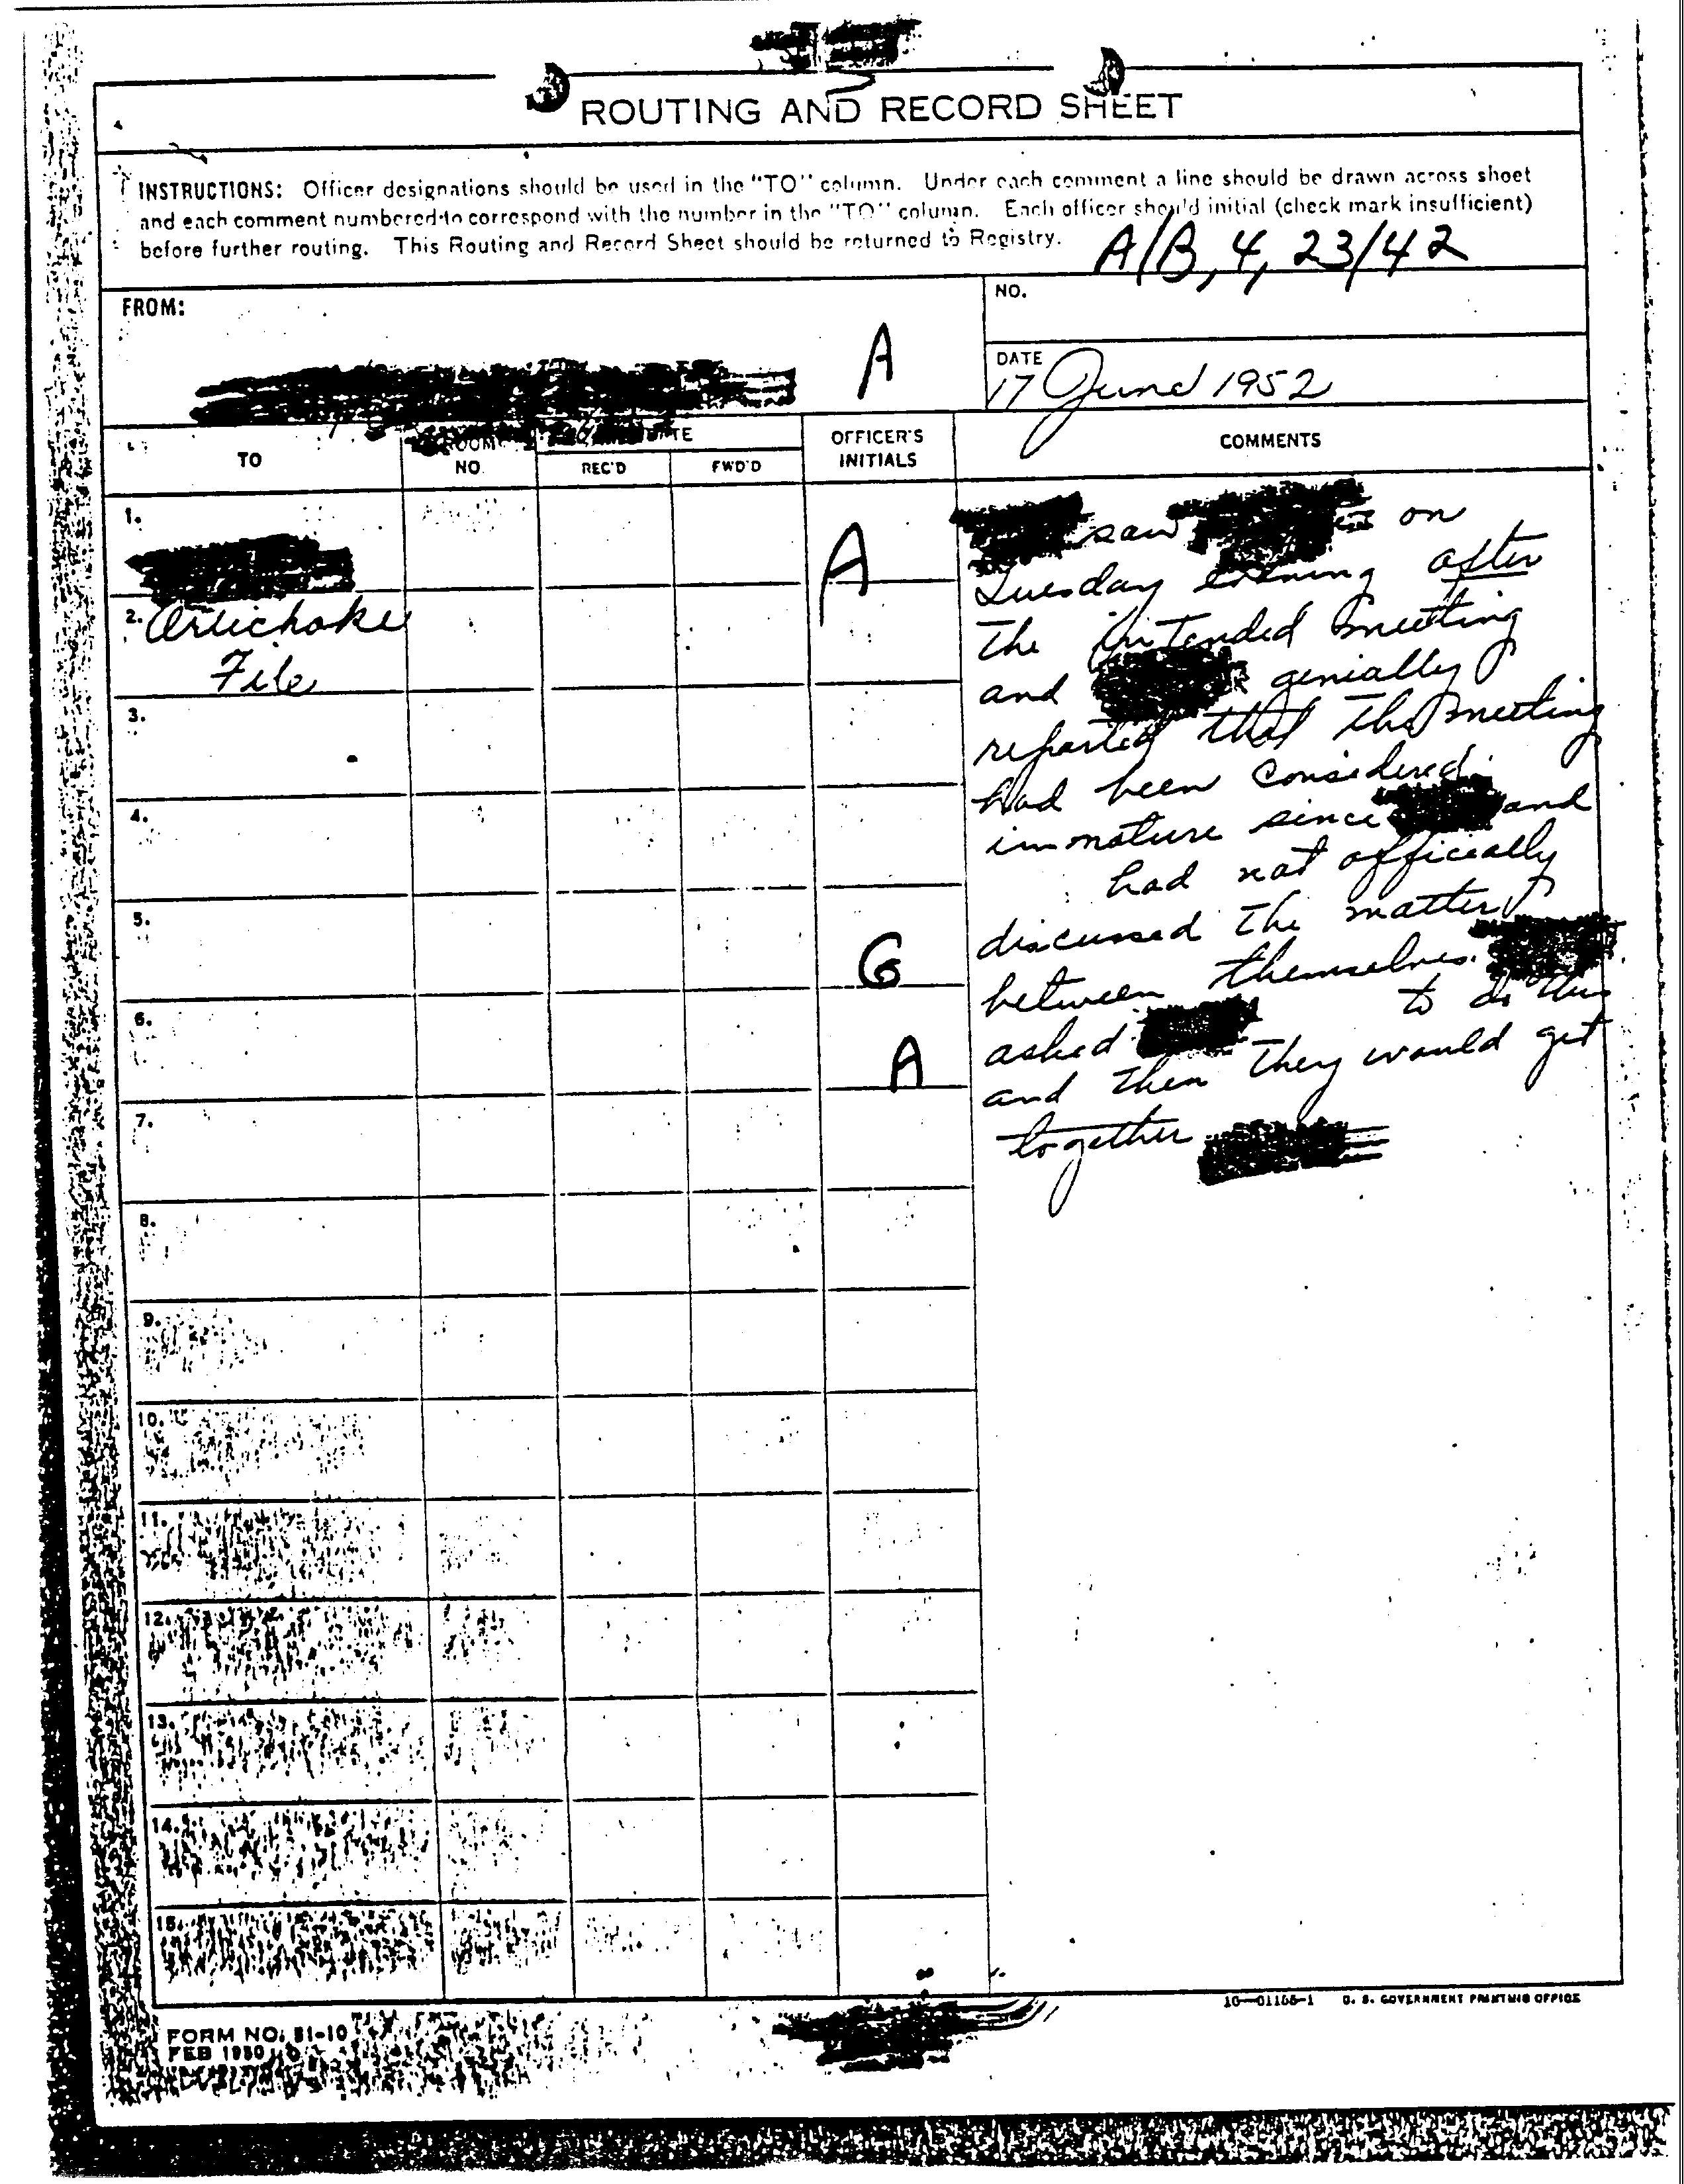 ROUTING AND RECORD SHEET
INSTRUCTIONS: Officer designations should be used in the "TO" column. Under each comment a line should be drawn across sheet
and each comment numbered to correspond with the number in the "TO" column. Each officer should initial (check mark insufficient)
before further routing. This Routing and Record Sheet should be returned to Registry.
A/B, 4, 23/42
FROM:
A
NO.
DATE
17 June 1952
TO
ROOM
NO.
REC'D
FWD'D
OFFICER'S
INITIALS
COMMENTS
1.
A
2. Artichoke
File
3.
4.
5.
G
6.
A
7.
8.
9.
10.
11.
12.
13.
14.
15.
saw on
Tuesday evening after
the intended meeting
and genially
reported that the meeting
had been considered
immature since and
had not officially
discussed the matter
between themselves.
asked to do this
and then they would get
together
FORM NO. 51-10
FEB 1950
16—01155-1 U. S. GOVERNMENT PRINTING OFFICE